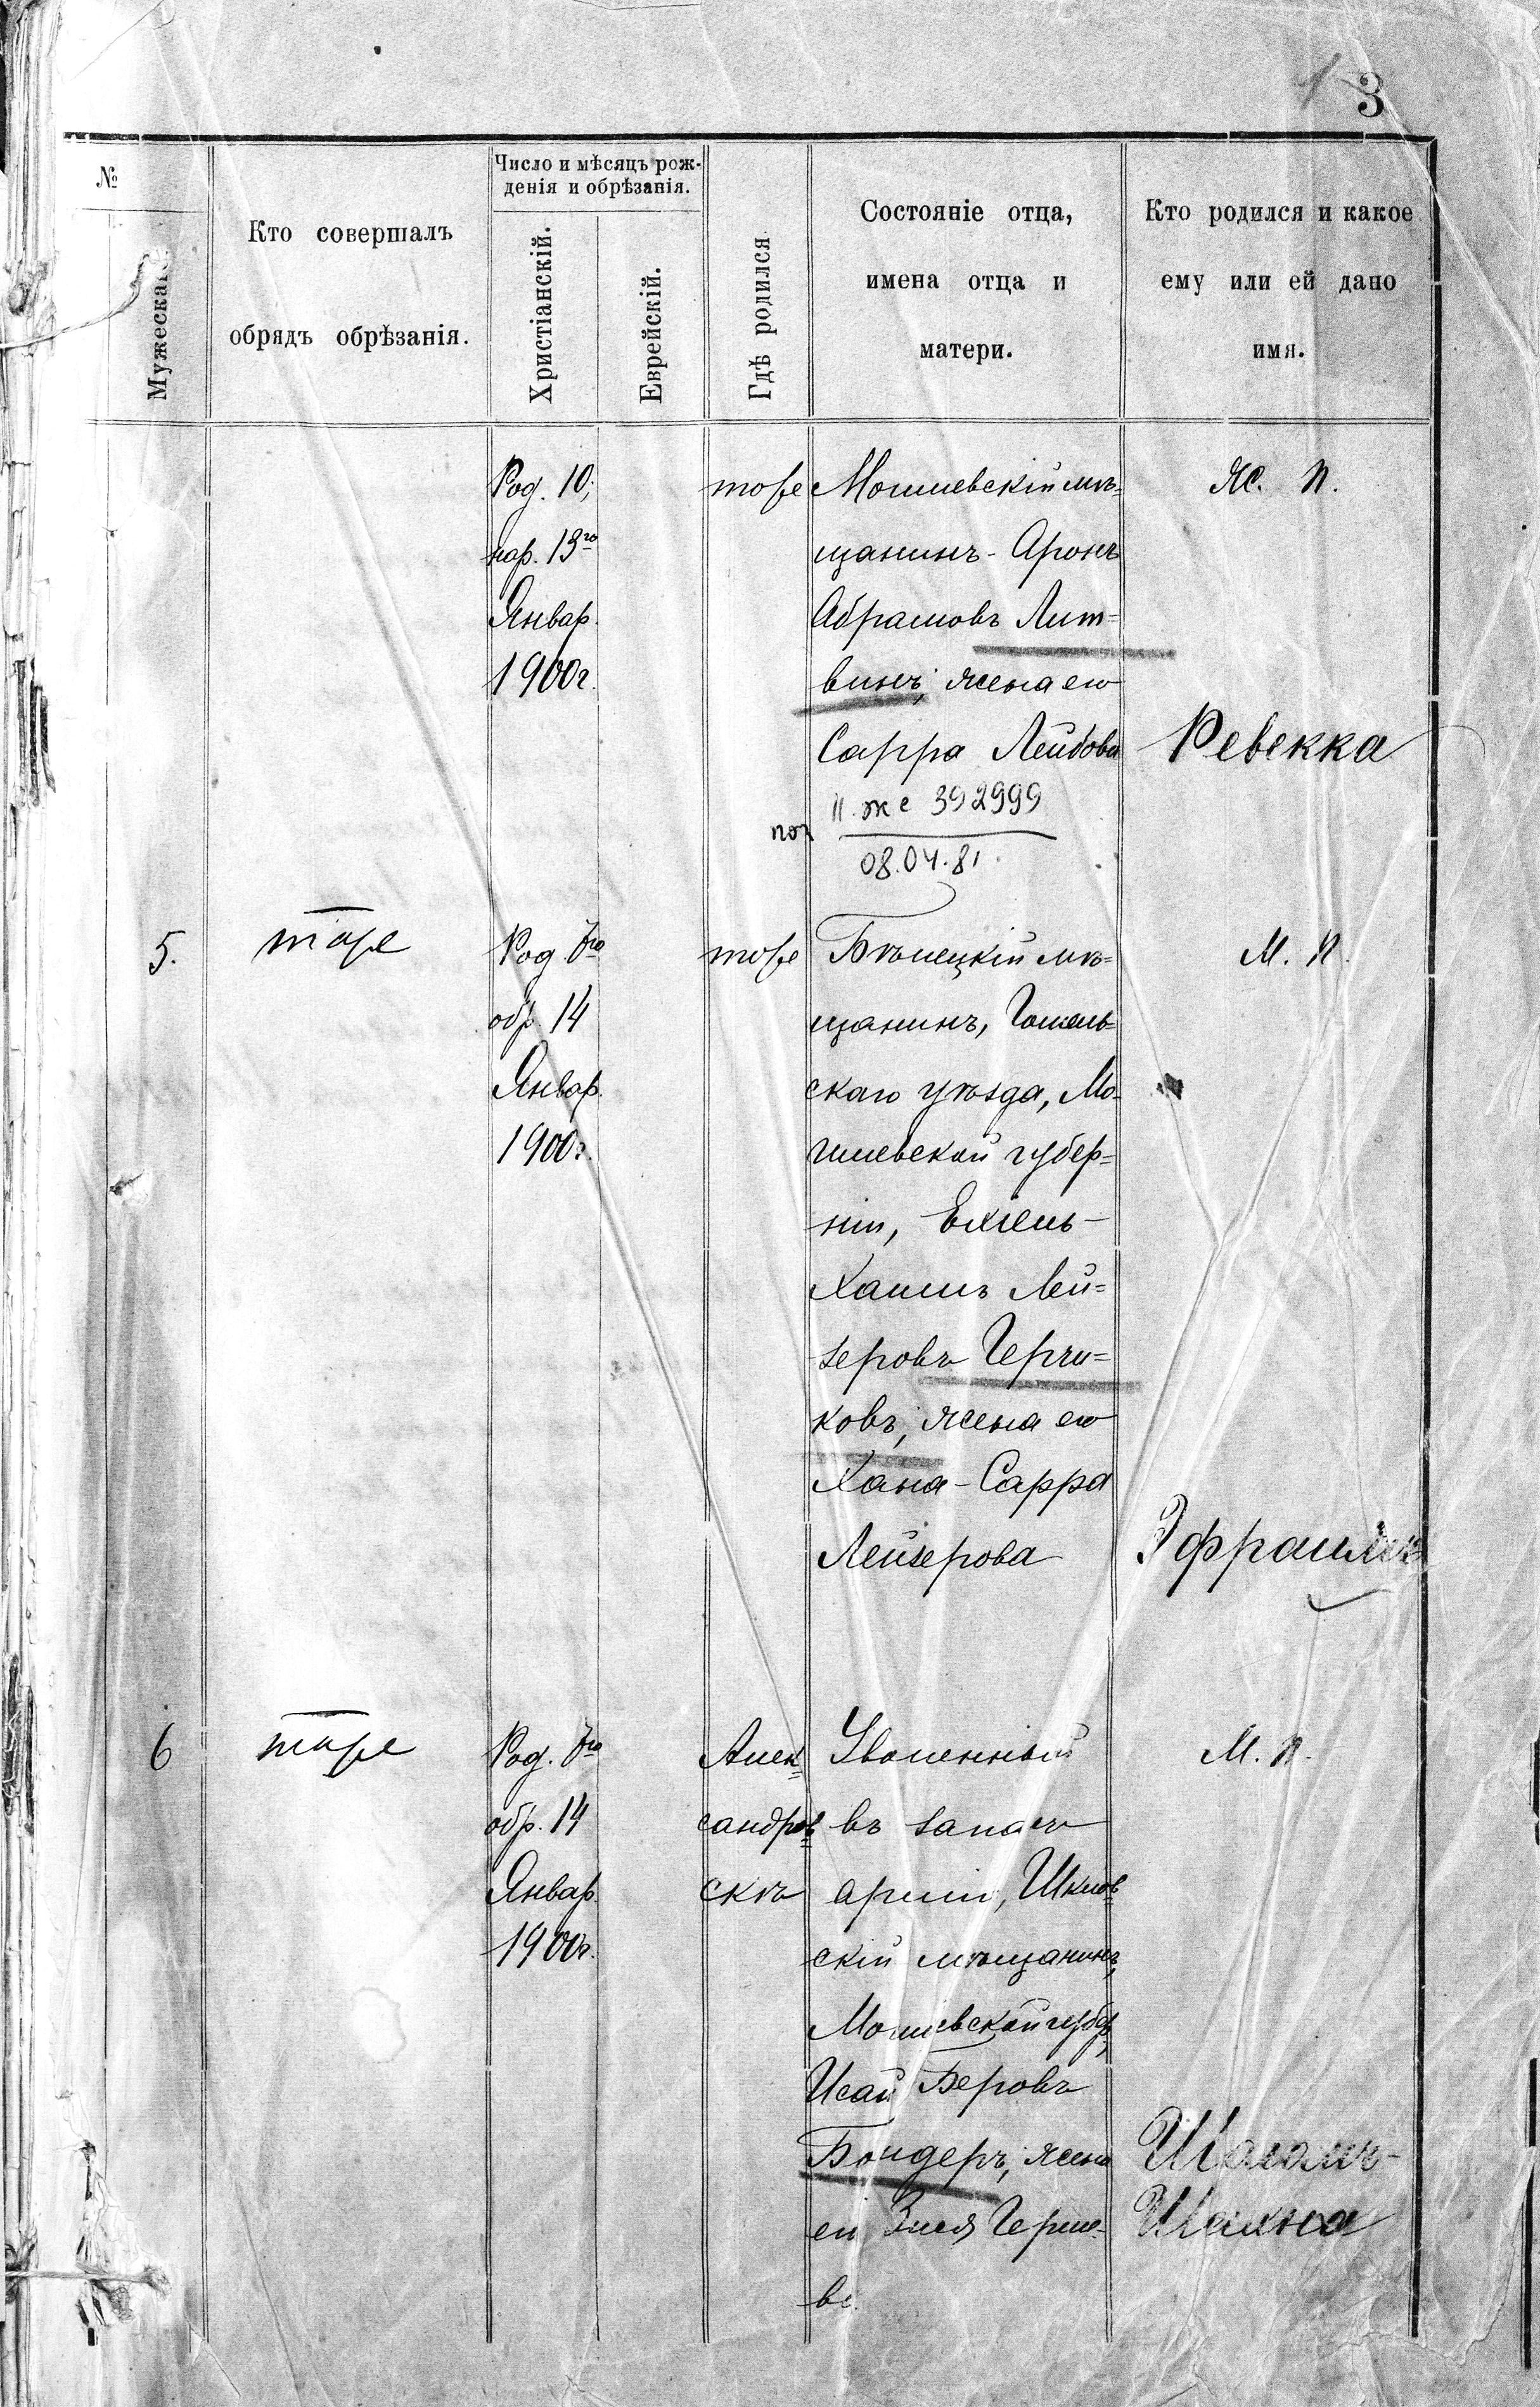 3
№
Мужеска
Кто совершалъ
обрядъ обрѣзанія.
Число и мѣсяцъ рож-
денія и обрѣзанія.
Христіанскій.
Еврейскій.
Гдѣ родился
Состояніе отца,
имена отца и
матери.
Кто родился и какое
ему или ей дано
имя.
Род. 10;
нар. 13го
Январ.
1900г.
тоже
Могилевскій мѣ=
щанинъ - Аронъ
Абрамовъ Лит=
винъ, жена его
Сарра Лейбова
II. же 392999
08.04.81.
Ж. п.
Ревекка
5.
тоже
Род. 7го
обр. 14
Январ.
1900г.
тоже
Бѣлецкій мѣ=
щанинъ, Гомель=
скаго уѣзда, Мо-
гилевской губер=
ніи, Ехіель-
Хаимъ Лей=
зеровъ Герчи=
ковъ, жена его
Хана-Сарра
Лейзерова
М. п.
Эфраимъ
6
тоже
Род. 7го
обр. 14
Январ.
1900г.
Алек=
сандров=
скѣ
Уволенный
въ запасъ
арміи, Шклов=
скій мѣщанинъ,
Могилевской губер,
Исай Беровъ
Бондеръ, жена
ег Злея Герше-
ва
М. п.
Шоломъ-
Шахна